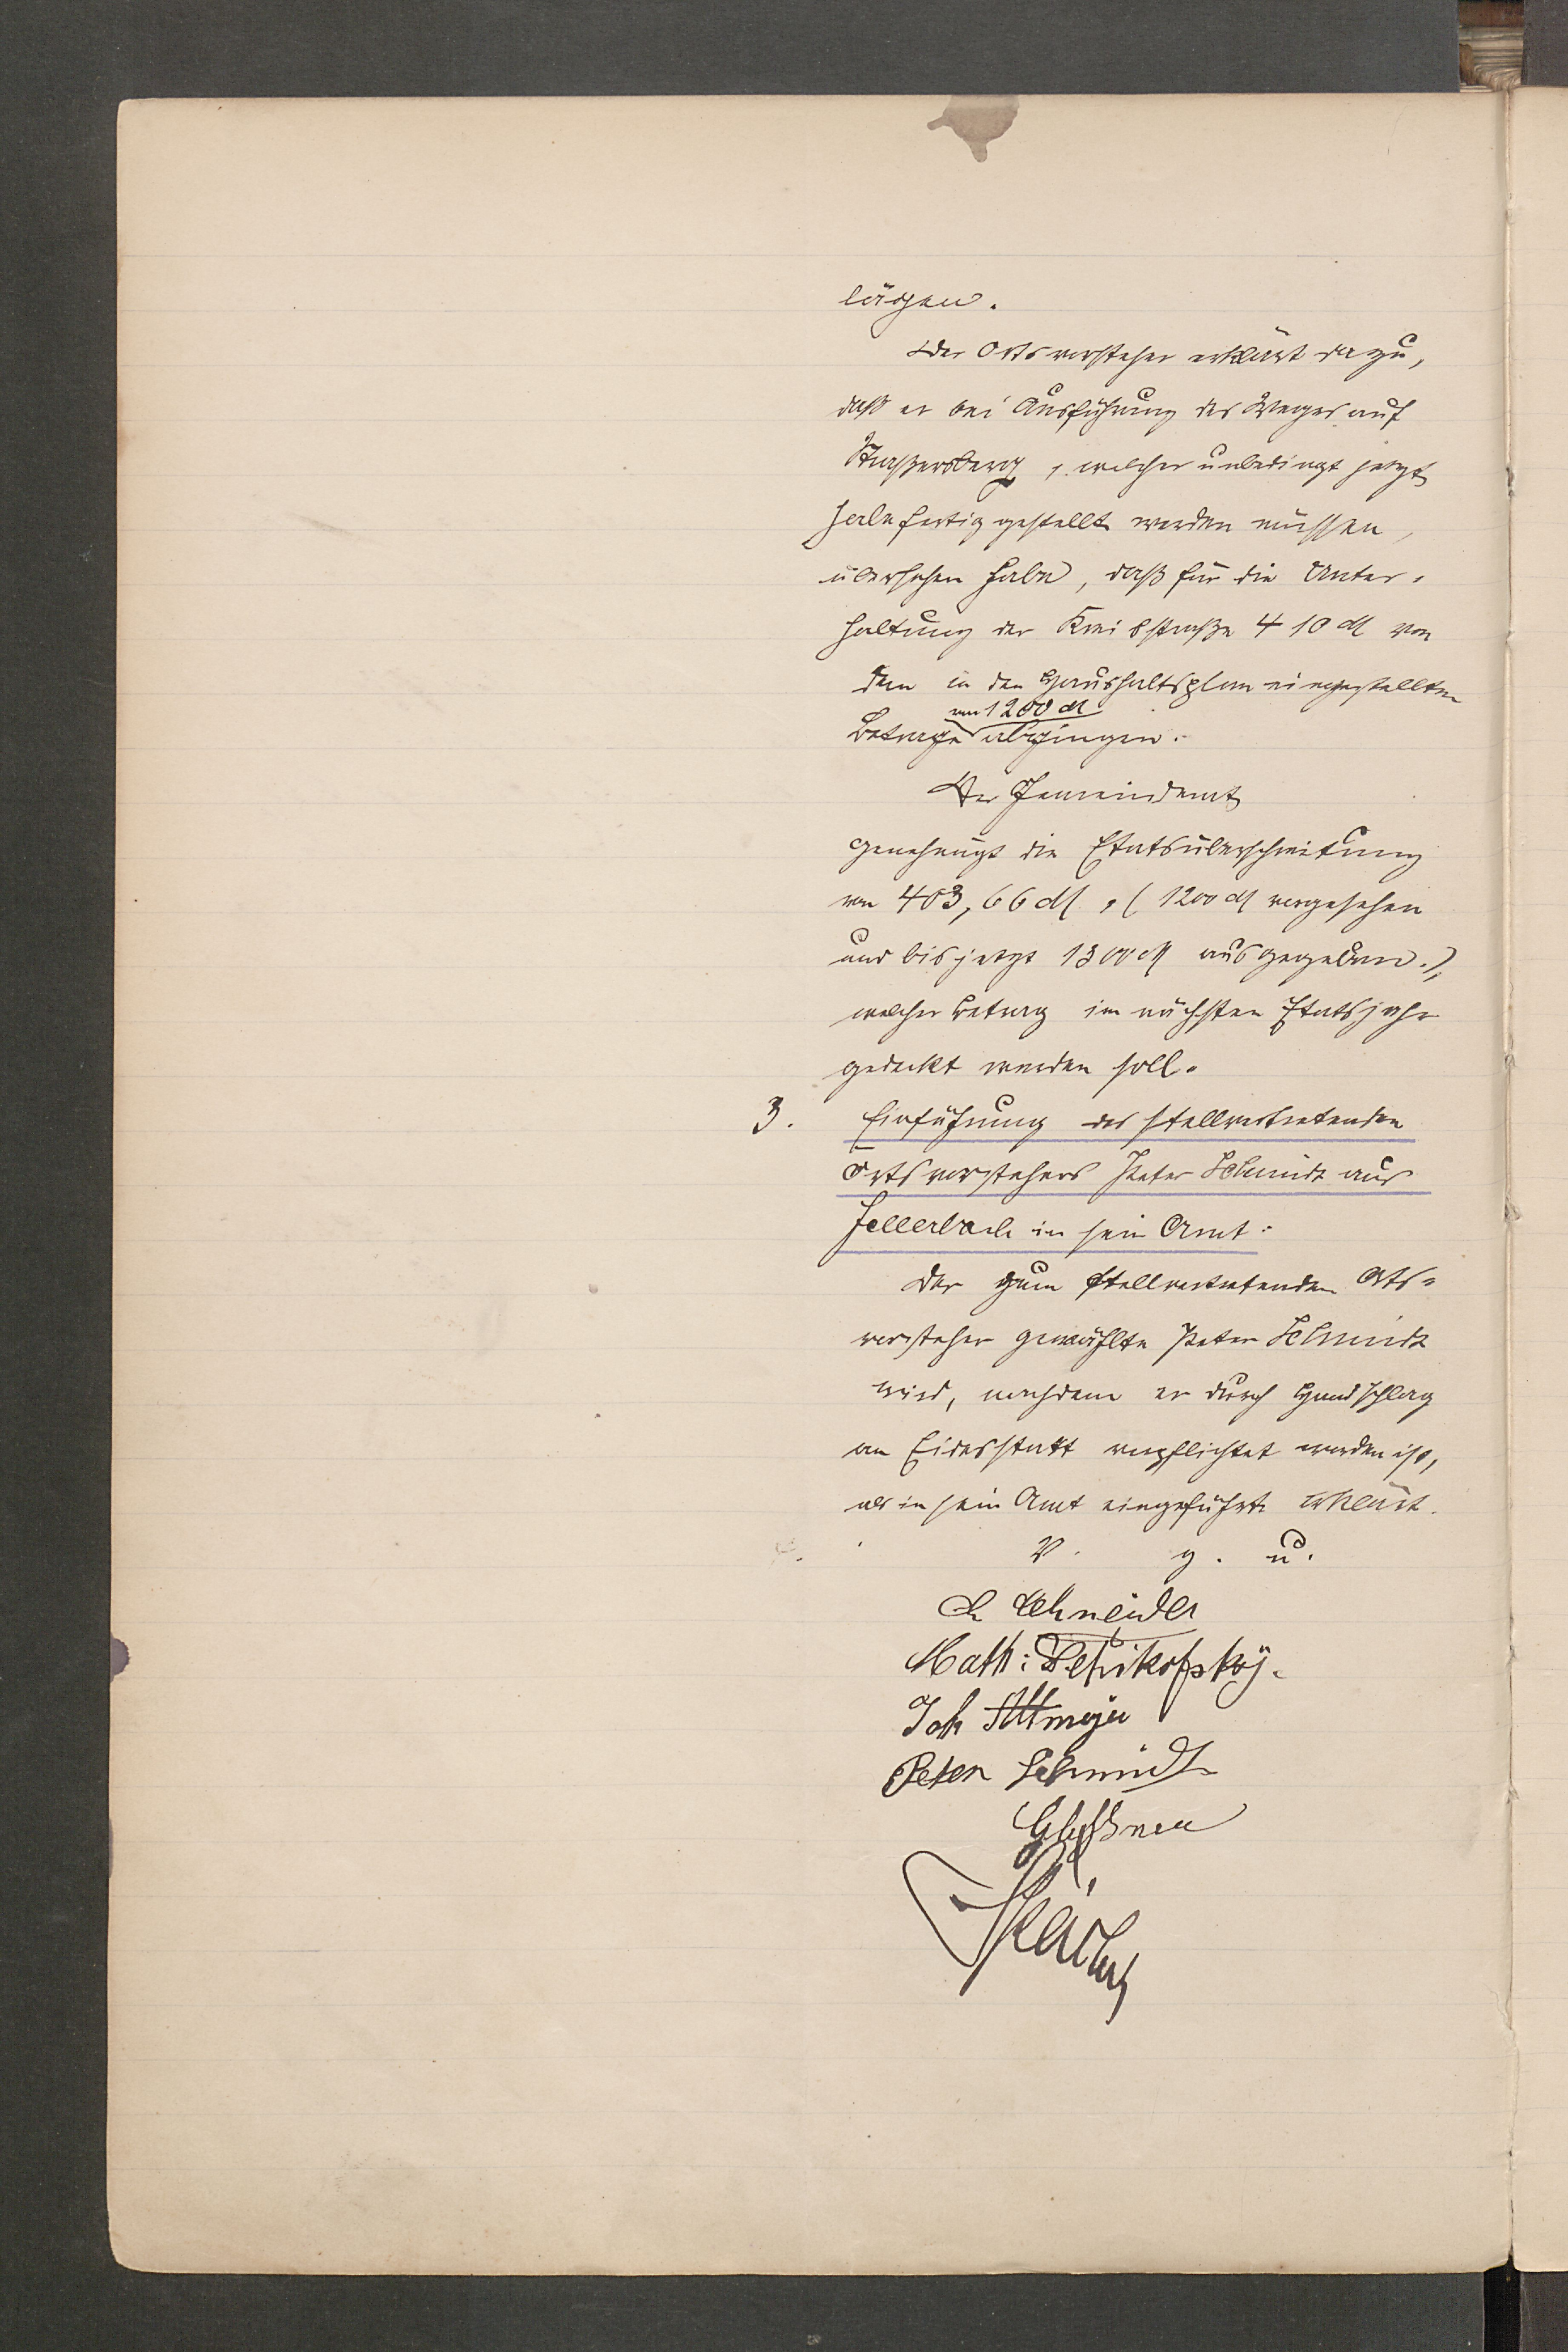 lägen.
Der Ortsvorsteher erklärt dazu,
daß er bei Ausführung des Weges auf
Straßersberg, welcher unbedingt jetzt
habe fertig gestellt werden müssen,
übersehen habe, daß für die Unter-
haltung der Kreisstraße 410 M von
dem in den Haushaltsplan eingestellten
von 1200 M
Betrage abgingen.
Der Gemeinderat
genehmigt die Etatsüberschreitung
von 403,66 M, (1200 M vorgesehen
und bis jetzt 1300 M ausgegeben.),
welcher Betrag im nächsten Etatsjahr
gedeckt werden soll.
3. Einführung des stellvertretenden
Ortsvorstehers Peter Schmidt aus
Hellerbach in sein Amt:
Der zum stellvertretenden Orts-
vorsteher gewählte Peter Schmidt
wird, nachdem er durch Handschlag
an Eidesstatt verpflichtet worden ist,
als in sein Amt eingeführt erklärt.
V. g. u.
Schneider
Math:
Joh Altmeyer
Peter Schmidt